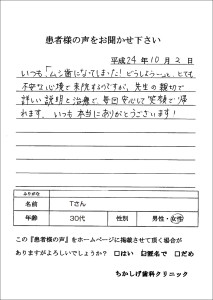 患者様の声をお聞かせ下さい
平成24年10月2日
いつも「ムシ歯になってしまった!どうしよう…」と、とても
不安な心境で来院するのですが、先生の親切で
詳しい説明と治療で、毎回安心して笑顔で帰
れます。いつも本当にありがとうございます!
ふりがな
名前 Tさん
年齢 30代 性別 男性・女性
この『患者様の声』をホームページに掲載させて頂く場合が
ありますがよろしいでしょうか? □はい ☑匿名で □だめ
ちかしげ歯科クリニック